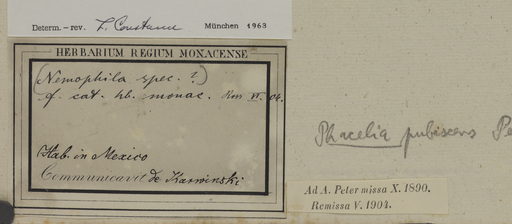 Determ. – rev. L. Constance München 1963
HERBARIUM REGIUM MONACENSE
(Nemophila spec. ?)
cf. cat. hb. monac. Ross VI. 04.
Hab. in Mexico
Communicavit de Karwinski
Phacelia pubiscens Pe
Ad A. Peter missa X. 1890.
Remissa V. 1904.